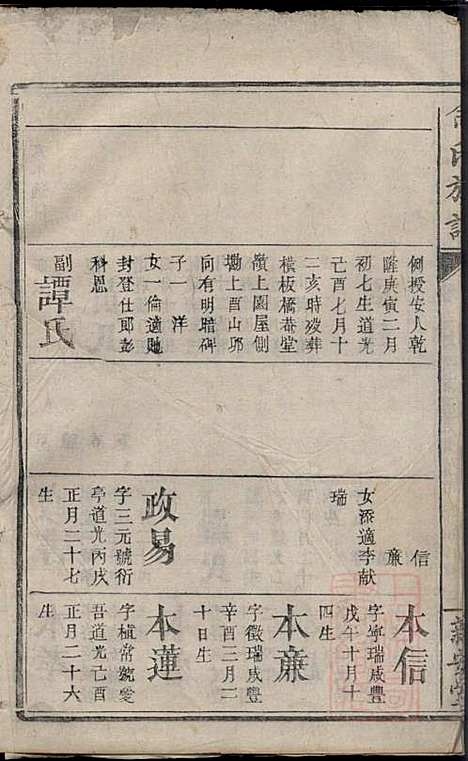 例授安人乾
隆庚寅二月
初七生道光
己酉七月十
二亥時歿葬
橫板橋菴堂
嶺上園屋側
坳上酉山邜
向有明瞻碑
子一 洋
女一倫適貤
封登仕郎彭
科恩
副譚氏
信 亷
女添適李献
瑞
政易
字三元號衍
亭道光丙戌
正月二十七
生
本信
字寧瑞咸豐
戊午十月十
四生
本亷
字徵瑞咸豐
辛酉三月二
十日生
本蓮
字植常號愛
吾道光己酉
正月二十六
生